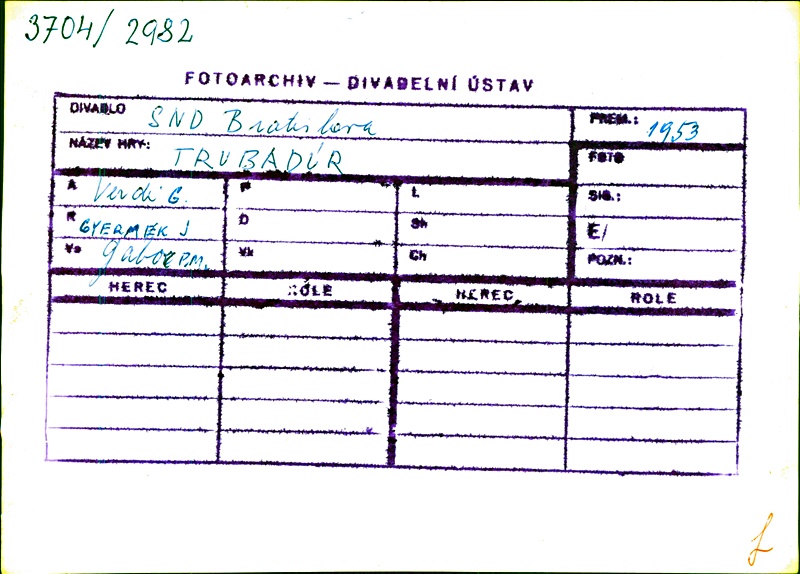 3704/2982
FOTOARCHIV — DIVADELNÍ ÚSTAV
DIVADLO SND Bratislava
PREM.: 1953
NÁZEV HRY: TRUBADÚR
FOTO
A Verdi G.
P
L
SIG.:
R GYERMEK J
D
Sh
E/
Vs Gabor P.M.
Vk
Ch
POZN.:
HEREC ROLE HEREC ROLE